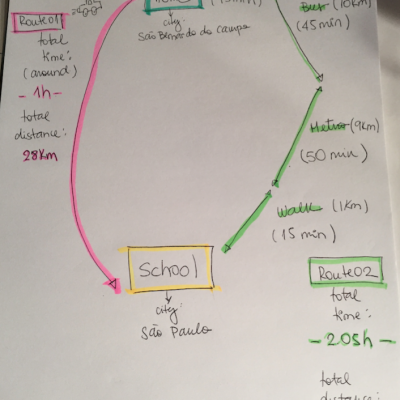 Route01
total
time:
(around)
- 1h -
total
distance:
28km
city:
São Bernardo do Campo
Bus (10km)
(45min)
Metro (9km)
(50 min)
Walk (1km)
(15 min)
School
city:
São Paulo
Route02
total
time:
- 205h -
total
distance: